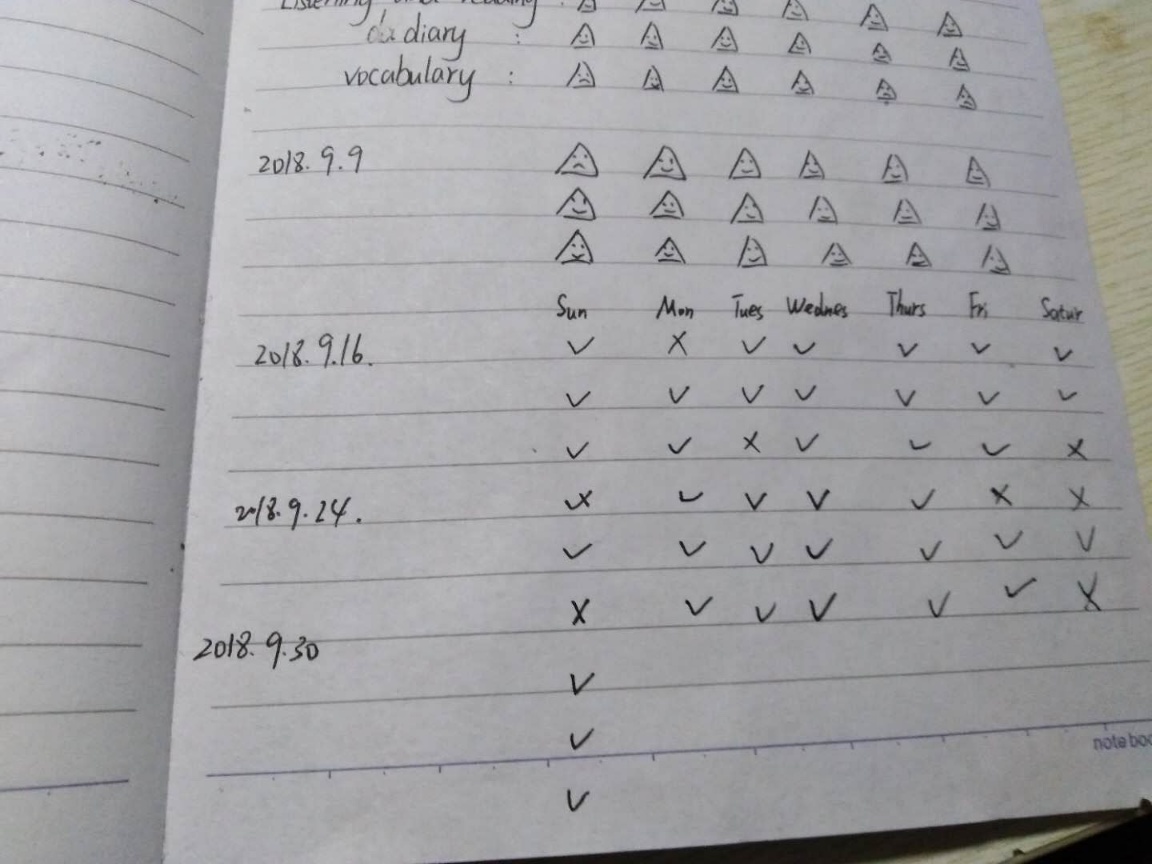 Listening and reading :
diary :
vocabulary :
2018.9.9
Sun Mon Tues Wednes Thurs Fri Satur
2018.9.16. ✓ X ✓ ✓ ✓ ✓ ✓
✓ ✓ ✓ ✓ ✓ ✓ ✓
✓ ✓ X ✓ ✓ ✓ X
2018.9.24. X ✓ ✓ ✓ ✓ X X
✓ ✓ ✓ ✓ ✓ ✓ ✓
X ✓ ✓ ✓ ✓ ✓ X
2018.9.30
✓
✓
✓